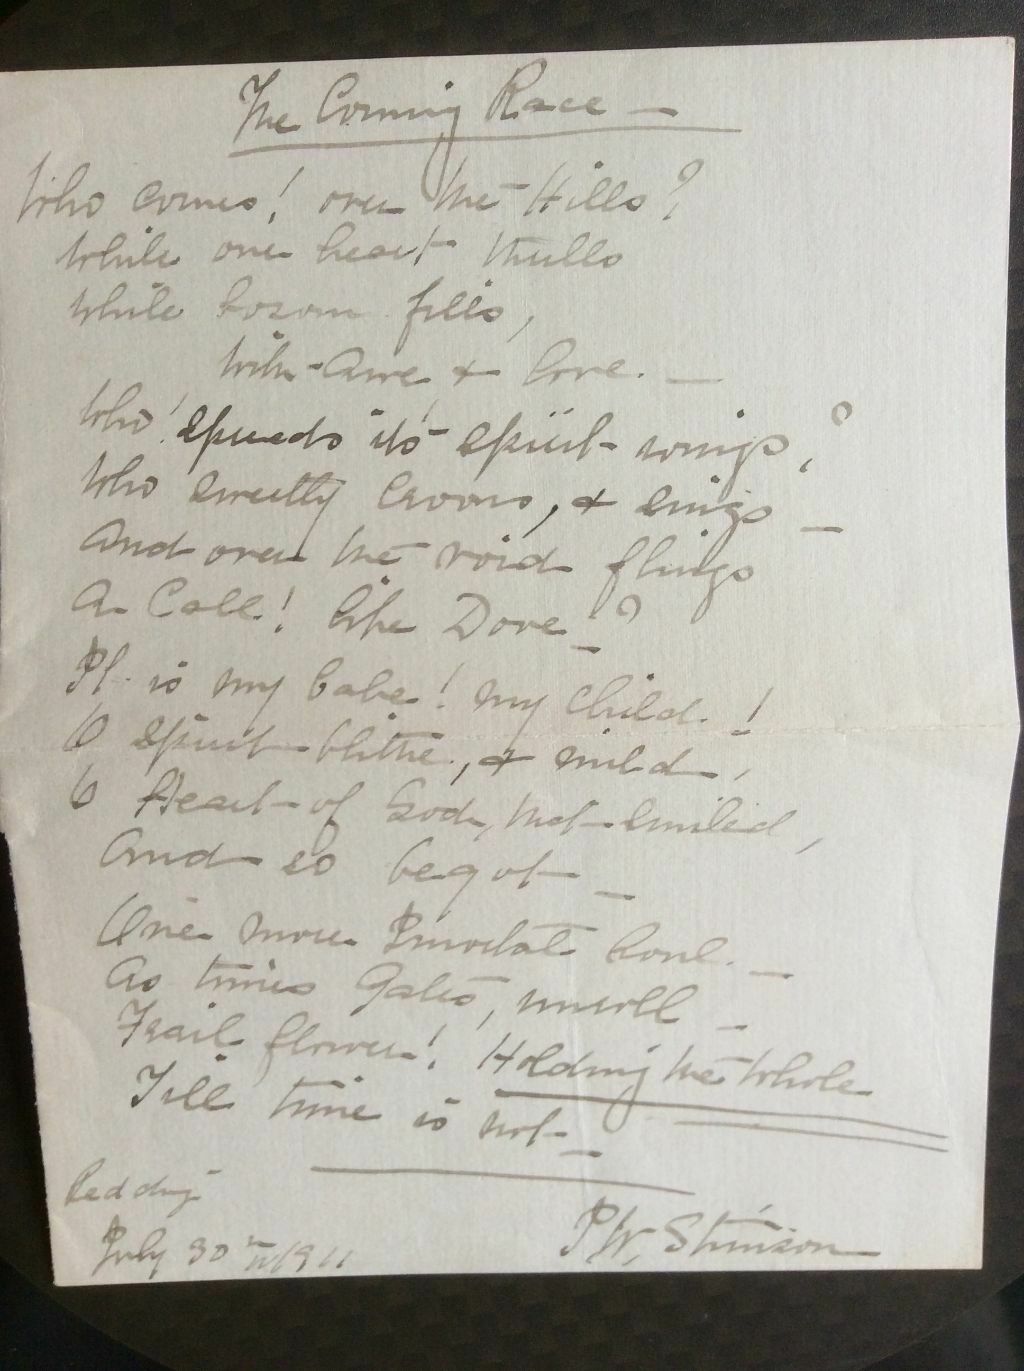 The Coming Race —
Who comes! over the Hills?
While one heart thrills
While bosom fills,
With Awe & love. —
Who! speeds it's spirit wings?
Who sweetly croons, & sings —
And over the void flings
A Call! like Dove —?
It is my babe! my child!
O spirit blithe, & mild,
O Heart of God, that smiled,
And so begot —
One more Immortal Soul. —
As times Gates, unroll —
Frail flower! Holding the Whole
Till time is not —
Redding
July 30 1911
Stimson